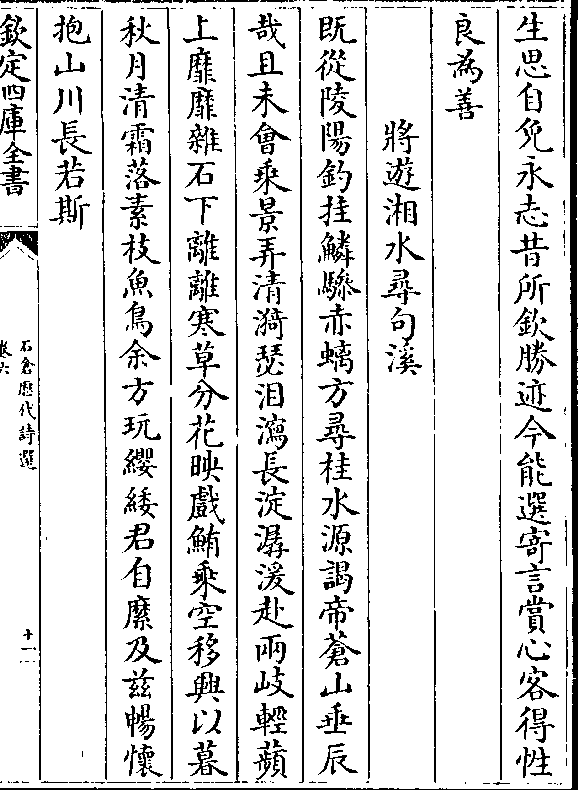 生思自免永志昔所欽勝迹今能選寄言賞心客得性
良為善
將遊湘水尋句溪
既從陵陽釣挂鱗驂赤螭方尋桂水源謁帝蒼山垂辰
哉且未會乘景弄清漪瑟汨瀉長淀潺湲赴兩岐輕蘋
上靡靡雜石下離離寒草分花映戲鮪乘空移興以暮
秋月清霜落素枝魚鳥余方玩纓緌君自縻及兹暢懷
抱山川長若斯
欽定四庫全書
石倉歷代詩選
卷六
十一